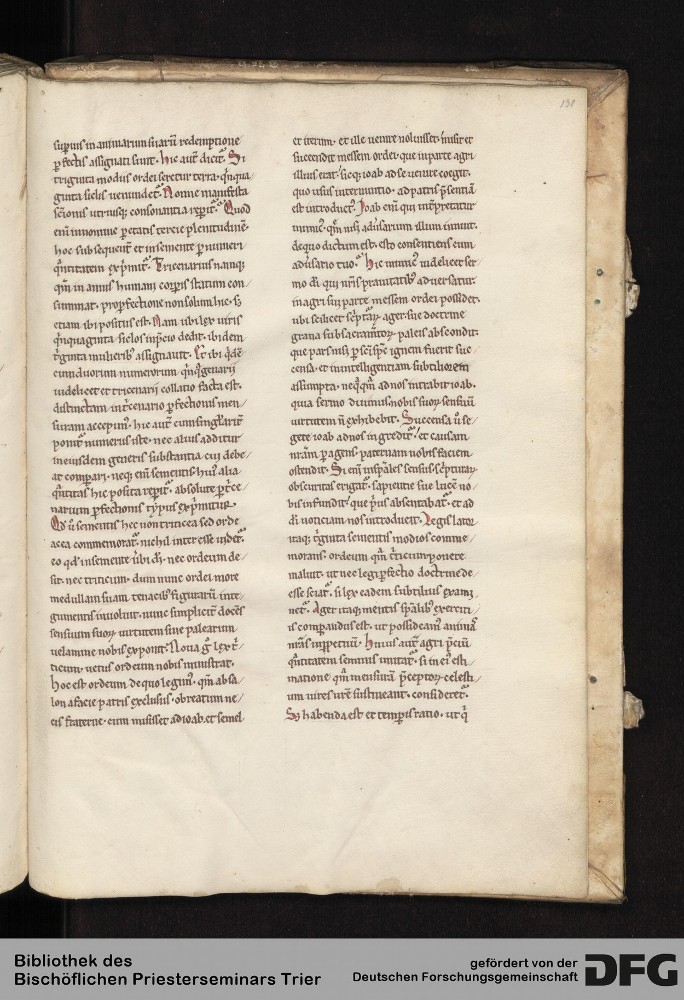 131
supius in animarum suarū redemptione
pfectis assignati sunt. hic aut dicit. Si
triginta modiis ordei seretur terra. qnqua
ginta siclis uenundet. Nonne manifesta
scionis utriusq; consonantia reperit. Quod
enī in nomine petatis tercie plenitudinē
hoc subsequent et in semente p numeri
qntitatem exprimit. Tricenarius namq;
qm in annis humani corpis statum con
summat. pro pfectione non solum hic. s;
etiam ibi positus est. Nam ubi lex uiris
qnquaginta siclos in pcio dedit. ibidem
triginta mulierib; assignauit. Et ibi qdē
eumduorum numerorum. qnqgenarii
uidelicet et tricenarij collatio facta est.
distinctam in tricenario pfectionis men
suram accepim. hic aut cum singlarit
ponit numerus iste. nec alius additur
in eiusdem generis substantia cui debe
at compari. neq; enī sementis hui alia
qntitas hic posita reperit. absolute p trice
narium pfectionis typus exprimitur.
Qd ū sementis hec non triticea sed orde
acea commemorat. nichil interesse uidet.
eo qd in semente ubi di. nec ordeum de
sit. nec triticum. dum nunc ordei more
medullam suam tenacib; figurarū inte
gumentis inuoluit. nunc simplicit docēs
sensuum suor uirtutem sine palearum
uelamine nobis exponit. Noua g lex tri
ticum. uetus ordeum nobis ministrat.
hoc est ordeum de quo legim. qm absa
lon a facie patris exclusus. ob reatum ne
cis fraterne. cum misisset ad ioab. et semel
et iterum. et ille uenire noluisset. misit et
succendit messem ordei. que in parte agri
illius erat. sicq; ioab ad se uenire coegit.
quo usus interuintio. ad patris psentiā
est introduct. Ioab enī qui intpretatur
inimic. qm nisi aduersarium illum inuenit.
de quo dictum est. esto consentiens cum
aduersario tuo. hic inimic uidelicet ser
mo di. qui nris prauitatib; aduersatur.
in agri sui parte messem ordei possidet.
ubi scilicet scripturar. ager sue doctrine
grana sub sacramtor. paleis abscondit.
que pars nisi p sci spc ignem fuerit suc
censa. et in intelligentiam subtiliorem
assumpta. neqqm ad nos intrabit ioab.
quia sermo diuinus nobis suor sensuū
uirtutem n exhibebit. Succensa ū se
gete ioab ad nos ingredit. et causam
nram p agens. paternam nobis faciem
ostendit. Si enī inspales sensus scripturar
obscuritas erigat. sapientie sue lucē no
bis infundit. que pus absentabat. et ad
di noticiam nos introducit. Legislator
itaq; triginta sementis modios comme
morans. ordeum qm triticum ponere
maluit. ut nec legi pfectio doctrine de
esse sciat. si lex eadem subtilius exami
net. Ager itaq; mentis spalib; exerciti
is comparandus est. ut possideant animā
nrās in spetuū. Huius aut agri pciū
qntitatem seminis imitat. si in ei esti
matione qm mensurā pceptor celesti
um uires nre sustineant. consideret.
S; habenda est et temporis ratio. ut q
Bibliothek des
Bischöflichen Priesterseminars Trier
gefördert von der
Deutschen Forschungsgemeinschaft
DFG